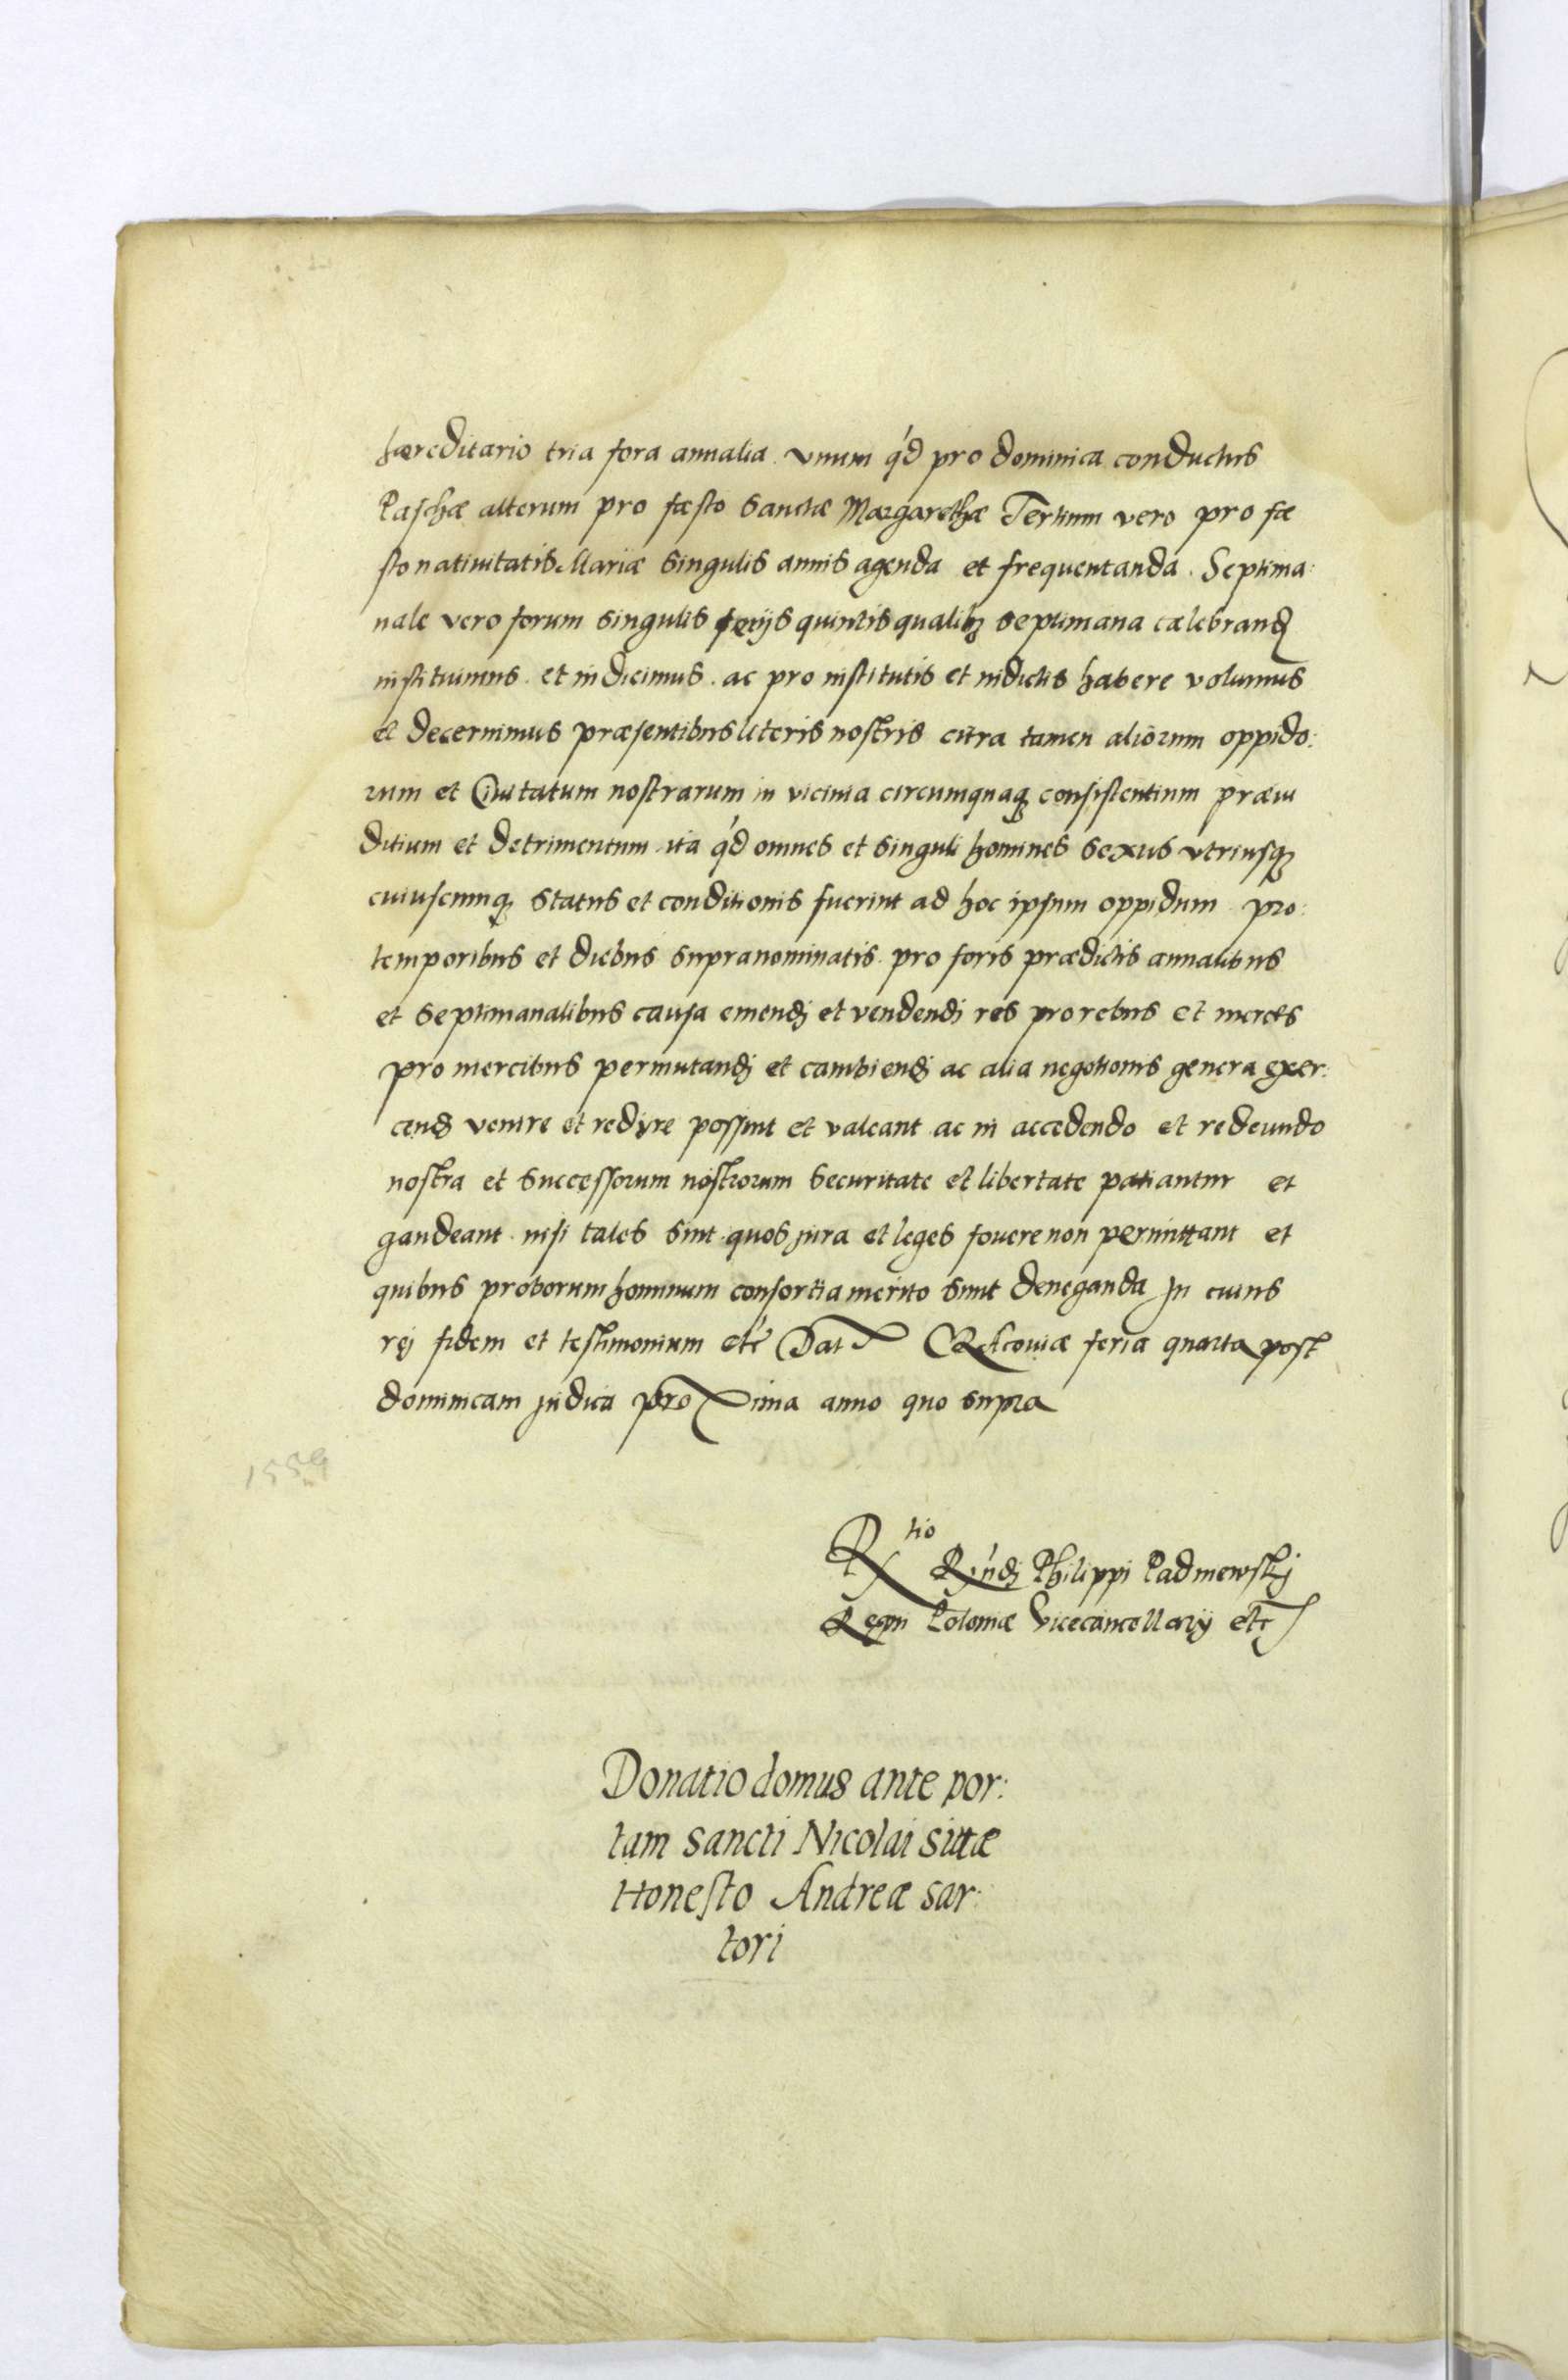 hæreditario tria fora annalia. vnum q'd pro dominica conductus
Paschæ alterum pro fæsto Sanctæ Margarethæ Tertium vero pro fæ
sto natiuitatis Mariæ singulis annis agenda et frequentanda. Septima:
nale vero forum singulis ferijs quintis qualibꝫ septimana cælebrand
instituimus. et indicimus. ac pro institutis et indictis habere volumus
et decernimus præsentibus literis nostris citra tamen aliorum oppido:
rum et Ciuitatum nostrarum in vicinia circumquaqꝫ consistentium præiu
ditium et detrimentum ita q'd omnes et singuli homines sexus vtriusqꝫ
cuiuscunqꝫ status et conditionis fuerint ad hoc ipsum oppidum pro:
temporibus et diebus supranominatis. pro foris prædictis annalibus
et septimanalibus causa emendj et vendendj res pro rebus et merces
pro mercibus permutandj et cambiendj ac alia negotionis genera exer:
cend venire et redire possint et valeant ac in accedendo et redeundo
nostra et successorum nostrorum securitate et libertate patiantur et
gaudeant. nisi tales sint quos jura et leges fouere non permittant et
quibus proborum hominum consortia merito sunt deneganda In cuius
rej fidem et testimonium etc Dat CRAcouiæ feria quarta post
dominicam judica proxima anno quo supra
1559
Rtio Rndj Philippi Padniewskj
Regni Poloniæ Vicecancellarij etc
Donatio domus ante por:
tam sancti Nicolai sittæ
Honesto Andreæ sar:
tori